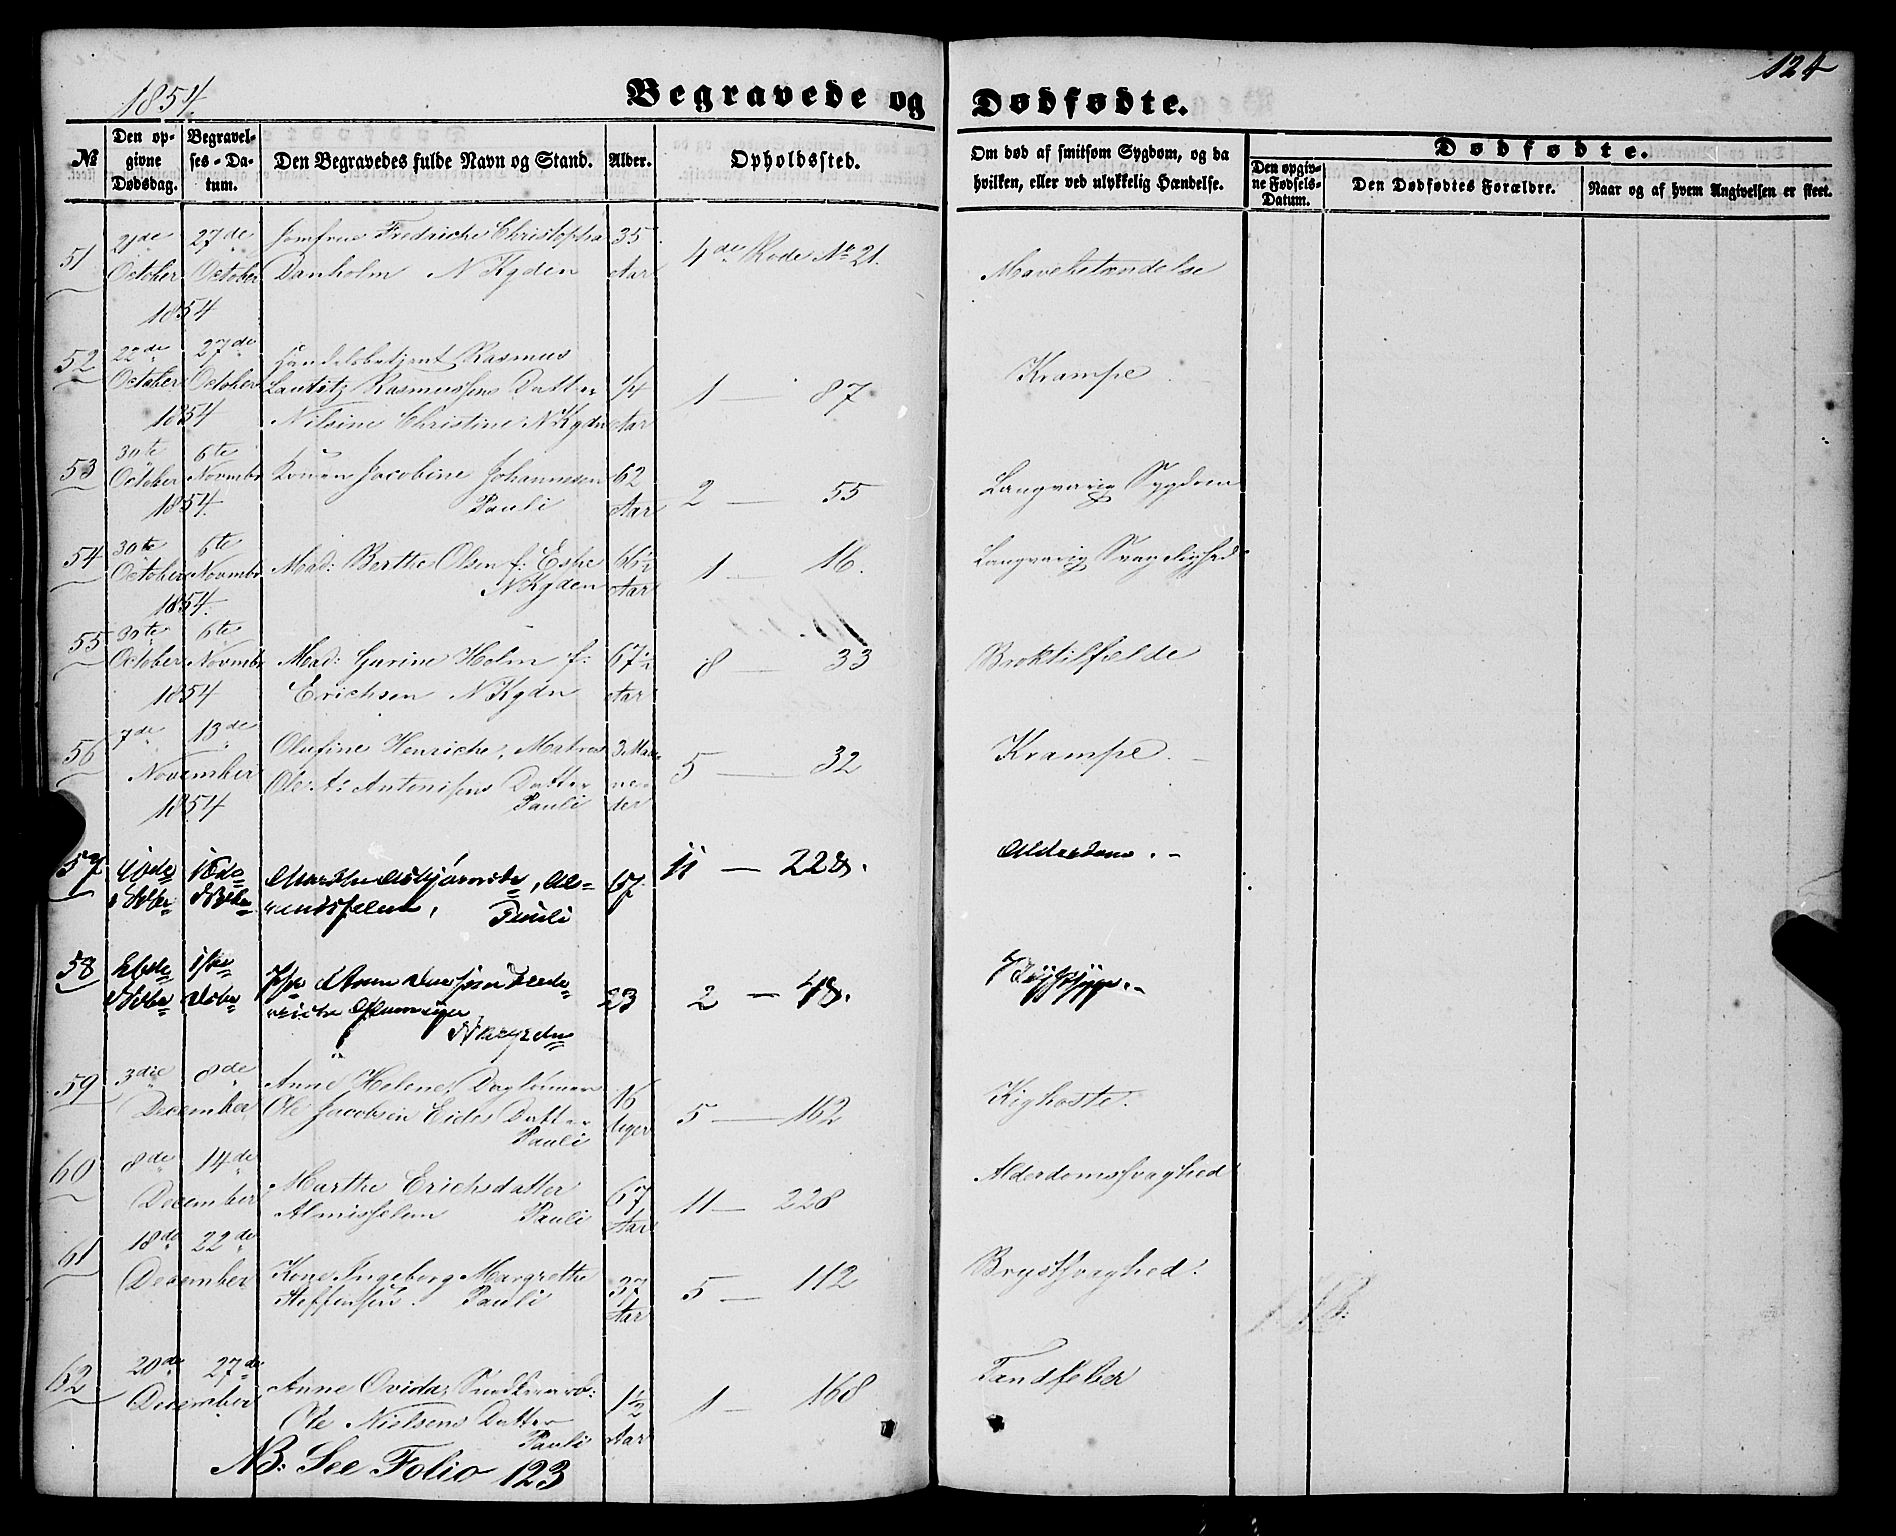 1854
124
Begravede og Dødfødte.
№
Den opgivne Dødsdag.
Begravelses-Datum.
Den Begravedes fulde Navn og Stand.
Alder.
Opholdssted.
Om død af smitsom Sygdom, og da hvilken, eller ved ulykkelig Hændelse.
Dødfødte.
Den opgivne Fødsels-Datum.
Den Dødfødtes Forældre.
Naar og af hvem Angivelsen er skeet.
51
27de
October October
1854
Jomfrue Fredriche
Danholm NKgden
35 Aar
4de Rode № 21.
52
22de 27de
October October
1854
Rasmus
Rasmussens Datter
Christine NKgdn
Aar
1 — 87
Krampe
53
30te 6te
October Novembr
1854.
Jacobine Johannesen
Pauli
62 Aar
2 — 55
Langvarig Sygdom
54
30te 6te
October Novembr
1854.
Mad: Berthe Olsen f:
NKgden
Aar
1 — 16.
Langvarig Svagelighed
55
30te 6te
October Novmbr
1854
Mad: Holm f:
Erichsen NKgdn
Aar
8 — 33
Broktilfælde
56
7de 13de
November
1854
Olufine Henriche,
Ole A: Antonisens Datter
Pauli
3 Maaneder
5 — 32
Krampe.
57
Pauli
67
11 — 228.
Alderdom.
58
23
2 — 48.
59
3die 8de
December
Anne Helene,
Ole Jacobsen Eides Datter
Pauli
16
5 — 162
Kighoste.
60
8de 14de
December
Marthe Erichsdatter
Almisselem Pauli
67 Aar
11 — 228
Alderdomssvaghed
61
18de 22de
December
Kone Ingeborg Margrethe
Steffensen. Pauli
37 Aar
5 — 112
Brystsvaghed.
62
20de 27de
December
Anne
Ole Nielsens Datter
Pauli
1½ Aar
1 — 168
Tandfeber
NB: See Folio 123